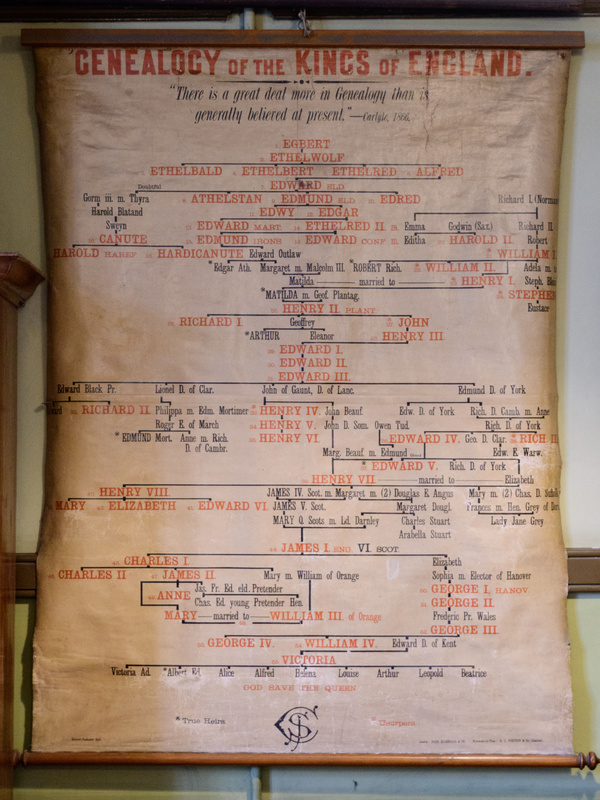 GENEALOGY OF THE KINGS OF ENGLAND.
"There is a great deal more in Genealogy than is
generally believed at present."—Carlyle, 1866.
EGBERT
ETHELWOLF
ETHELBALD ETHELBERT ETHELRED ALFRED
Doubtful EDWARD ELD.
Gorm iii. m. Thyra ATHELSTAN EDMUND ELD. EDRED Richard I. (Norman
Harold Blatand EDWY EDGAR
Sweyn EDWARD MART. ETHELRED II. Emma Godwin (Sax.) Richard II.
CANUTE EDMUND IRONS EDWARD CONF. Editha HAROLD II. Robert
HAROLD HAREF. HARDICANUTE Edward Outlaw WILLIAM I.
*Edgar Ath. Margaret m. Malcolm III. *ROBERT Rich. WILLIAM II. Adela m.
Matilda — married to — HENRY I. Steph.
*MATILDA m. Geof. Plantag. STEPHEN
HENRY II. PLANT Eustace
RICHARD I. Geoffrey JOHN
*ARTHUR Eleanor HENRY III.
EDWARD I.
EDWARD II.
EDWARD III.
Edward Black Pr. Lionel D. of Clar. John of Gaunt, D. of Lanc. Edmund D. of York
RICHARD II. Philippa m. Edm. Mortimer HENRY IV. Joan Beauf. Edw. D. of York Rich. D. Camb. m. Anne
Roger E. of March HENRY V. John D. Som. Owen Tud. Rich. D. of York
*EDMUND Mort. Anne m. Rich. HENRY VI. EDWARD IV. Geo. D. Clar. RICH
D. of Cambr. Marg. Beauf. m. Edmund Edw. E. Warw.
EDWARD V. Rich. D. of York
HENRY VII. — married to — Elizabeth
HENRY VIII. JAMES IV. Scot. m. Margaret m. (2) Douglas E. Angus Mary m. (2) Chas. D.
MARY ELIZABETH EDWARD VI. JAMES V. Scot. Margaret Dougl. Frances m. Hen. Grey of
MARY Q. Scots m. Ld. Darnley Charles Stuart Lady Jane Grey
Arabella Stuart
JAMES I. ENG. VI. SCOT.
CHARLES I. Elizabeth
CHARLES II JAMES II. Mary m. William of Orange Sophia m. Elector of Hanover
Jas. Fr. Ed. eld. Pretender GEORGE I. HANOV.
ANNE Chas. Ed. young Pretender Hen. GEORGE II.
MARY — married to — WILLIAM III. of Orange Frederic Pr. Wales
GEORGE III.
GEORGE IV. WILLIAM IV. Edward D. of Kent
VICTORIA
Victoria Ad. *Albert Ed. Alice Alfred Helena Louise Arthur Leopold Beatrice
GOD SAVE THE QUEEN
*True Heirs Usurpers